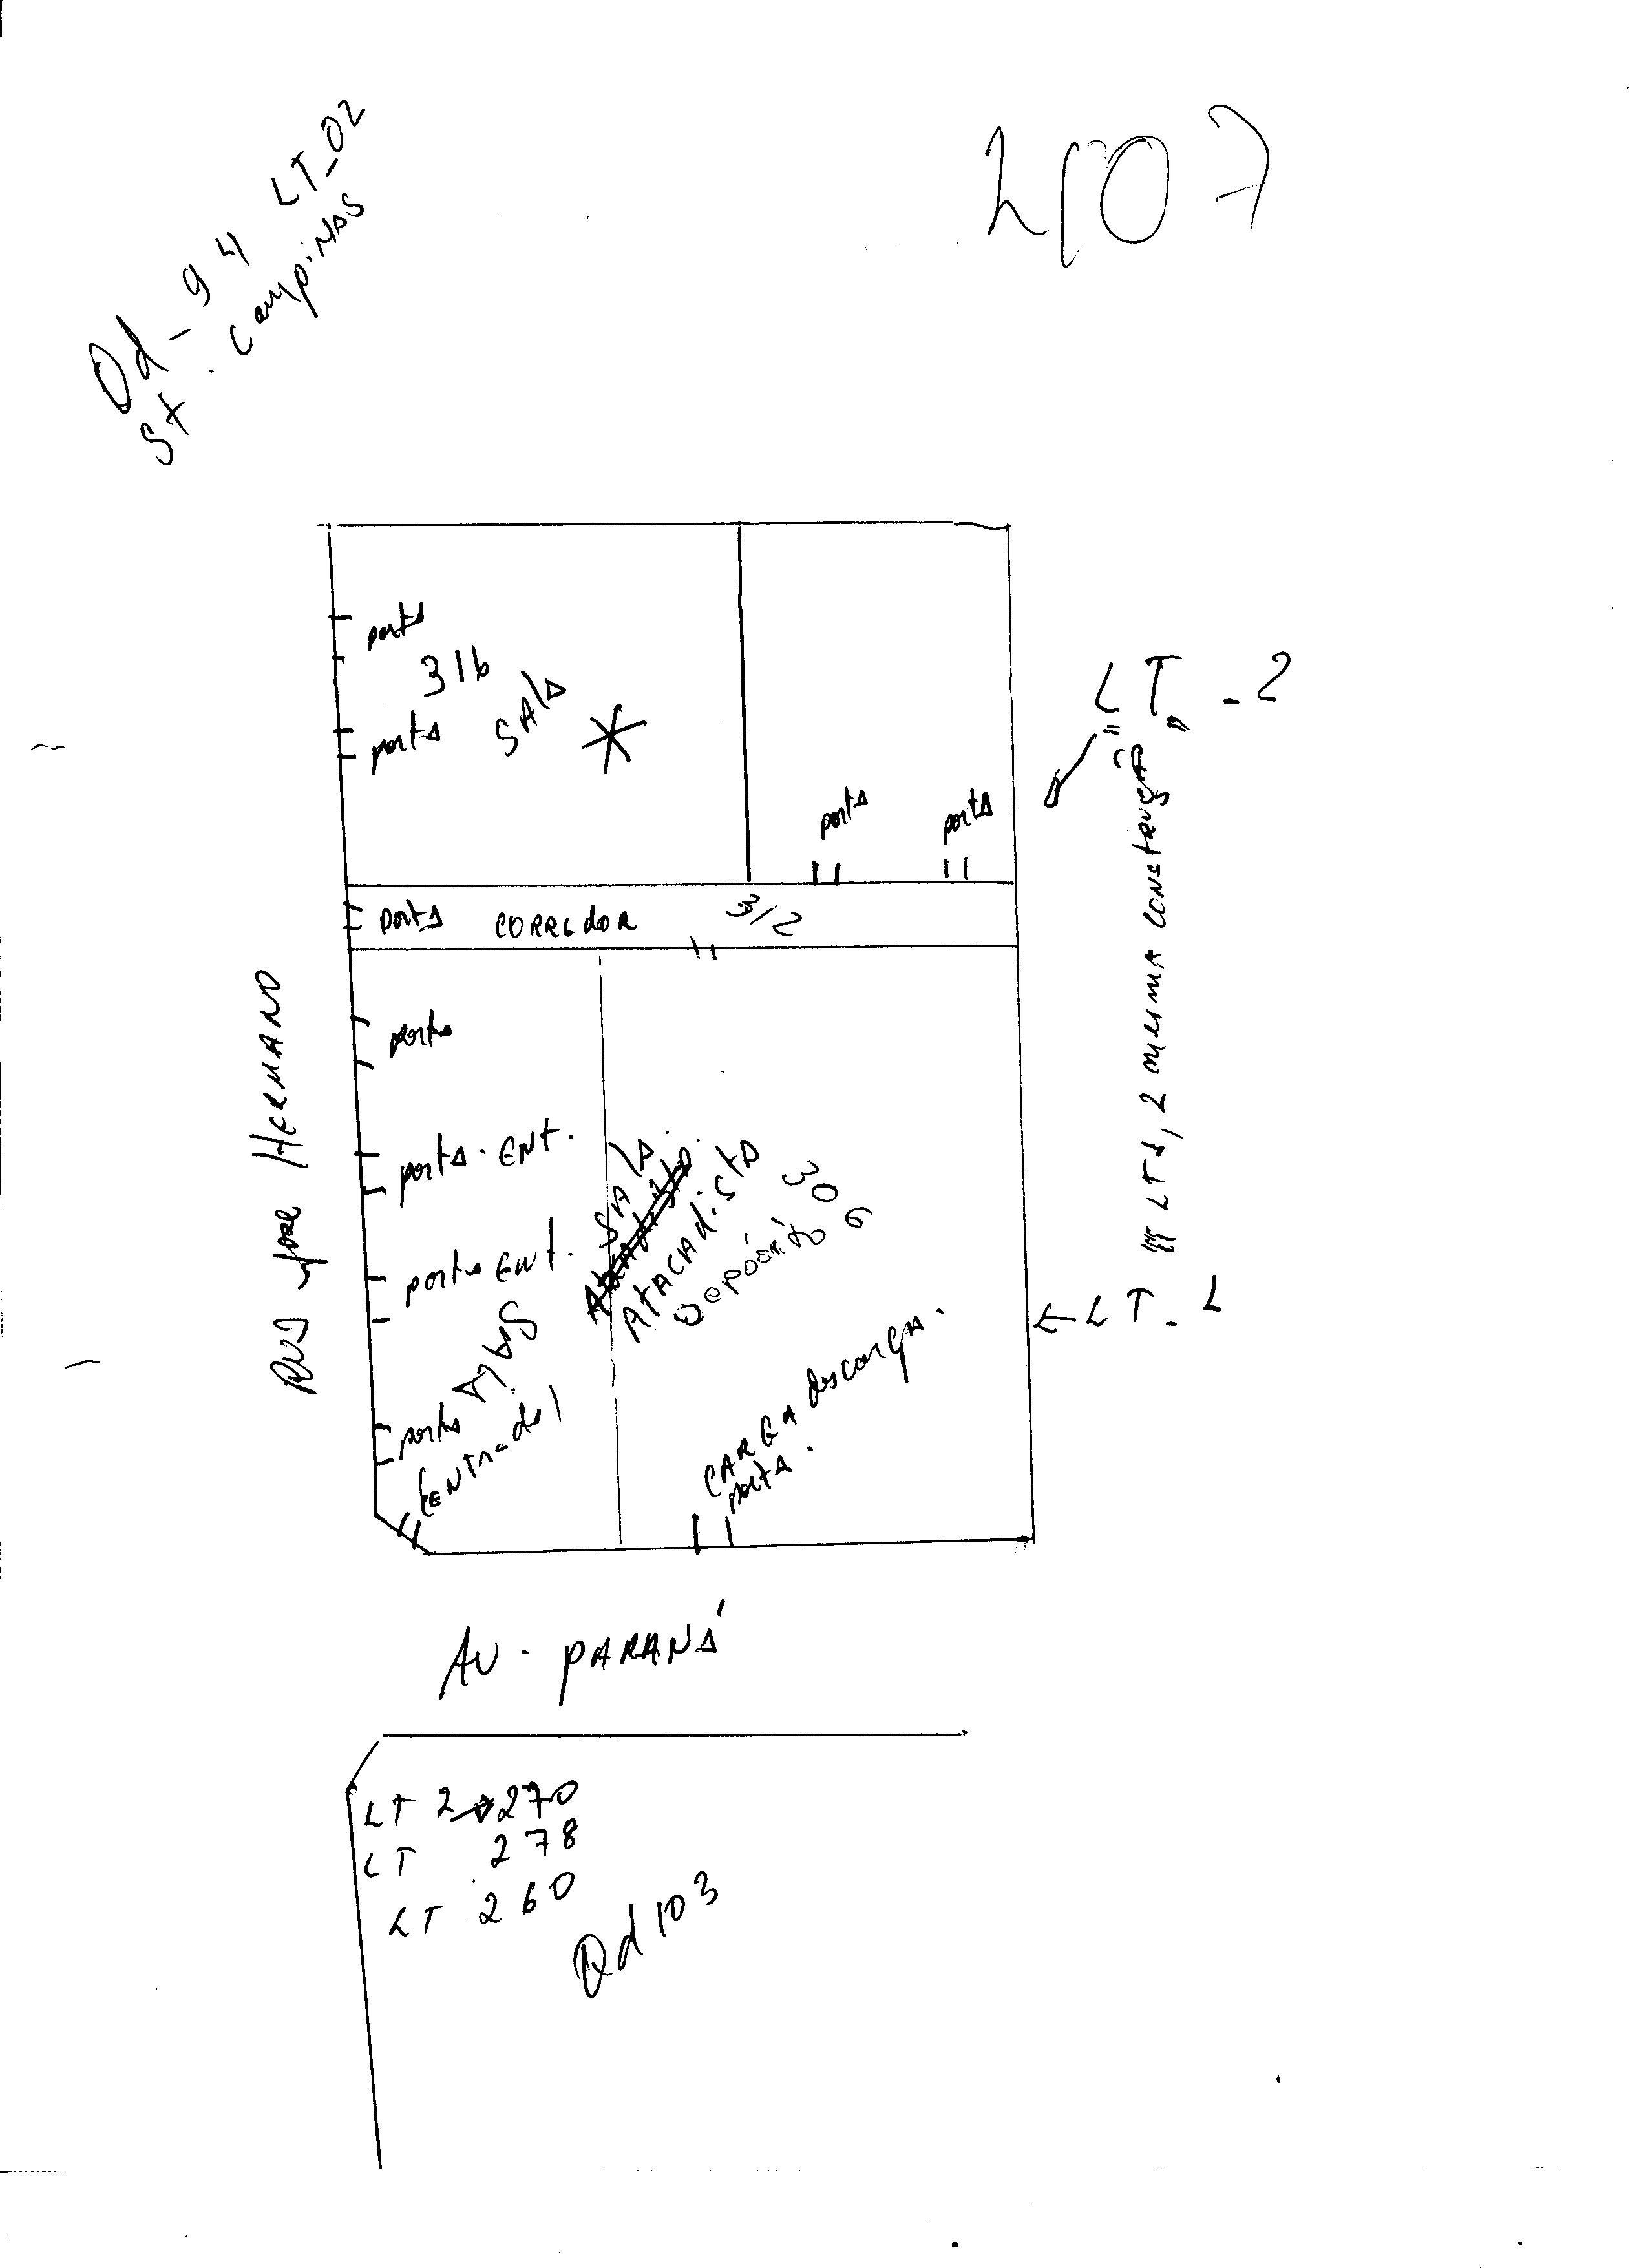 Qd - 94 LT_02
St. Campinas
porta
316
porta
SAlA
LT. - 2
porta
porta
porta CORREdOR
312
porta
RUA José HERMANO
porta. ENt.
porta ENt.
SAlA.
AtACAdistA
Depósito
306
LT 1, 2 mesma CONStRuçÃ
← LT - 1
porta
ENtrada
CARGA descarga.
porta.
AV. PARANÁ
LT 2 → 270
LT 278
LT 260
Qd 103